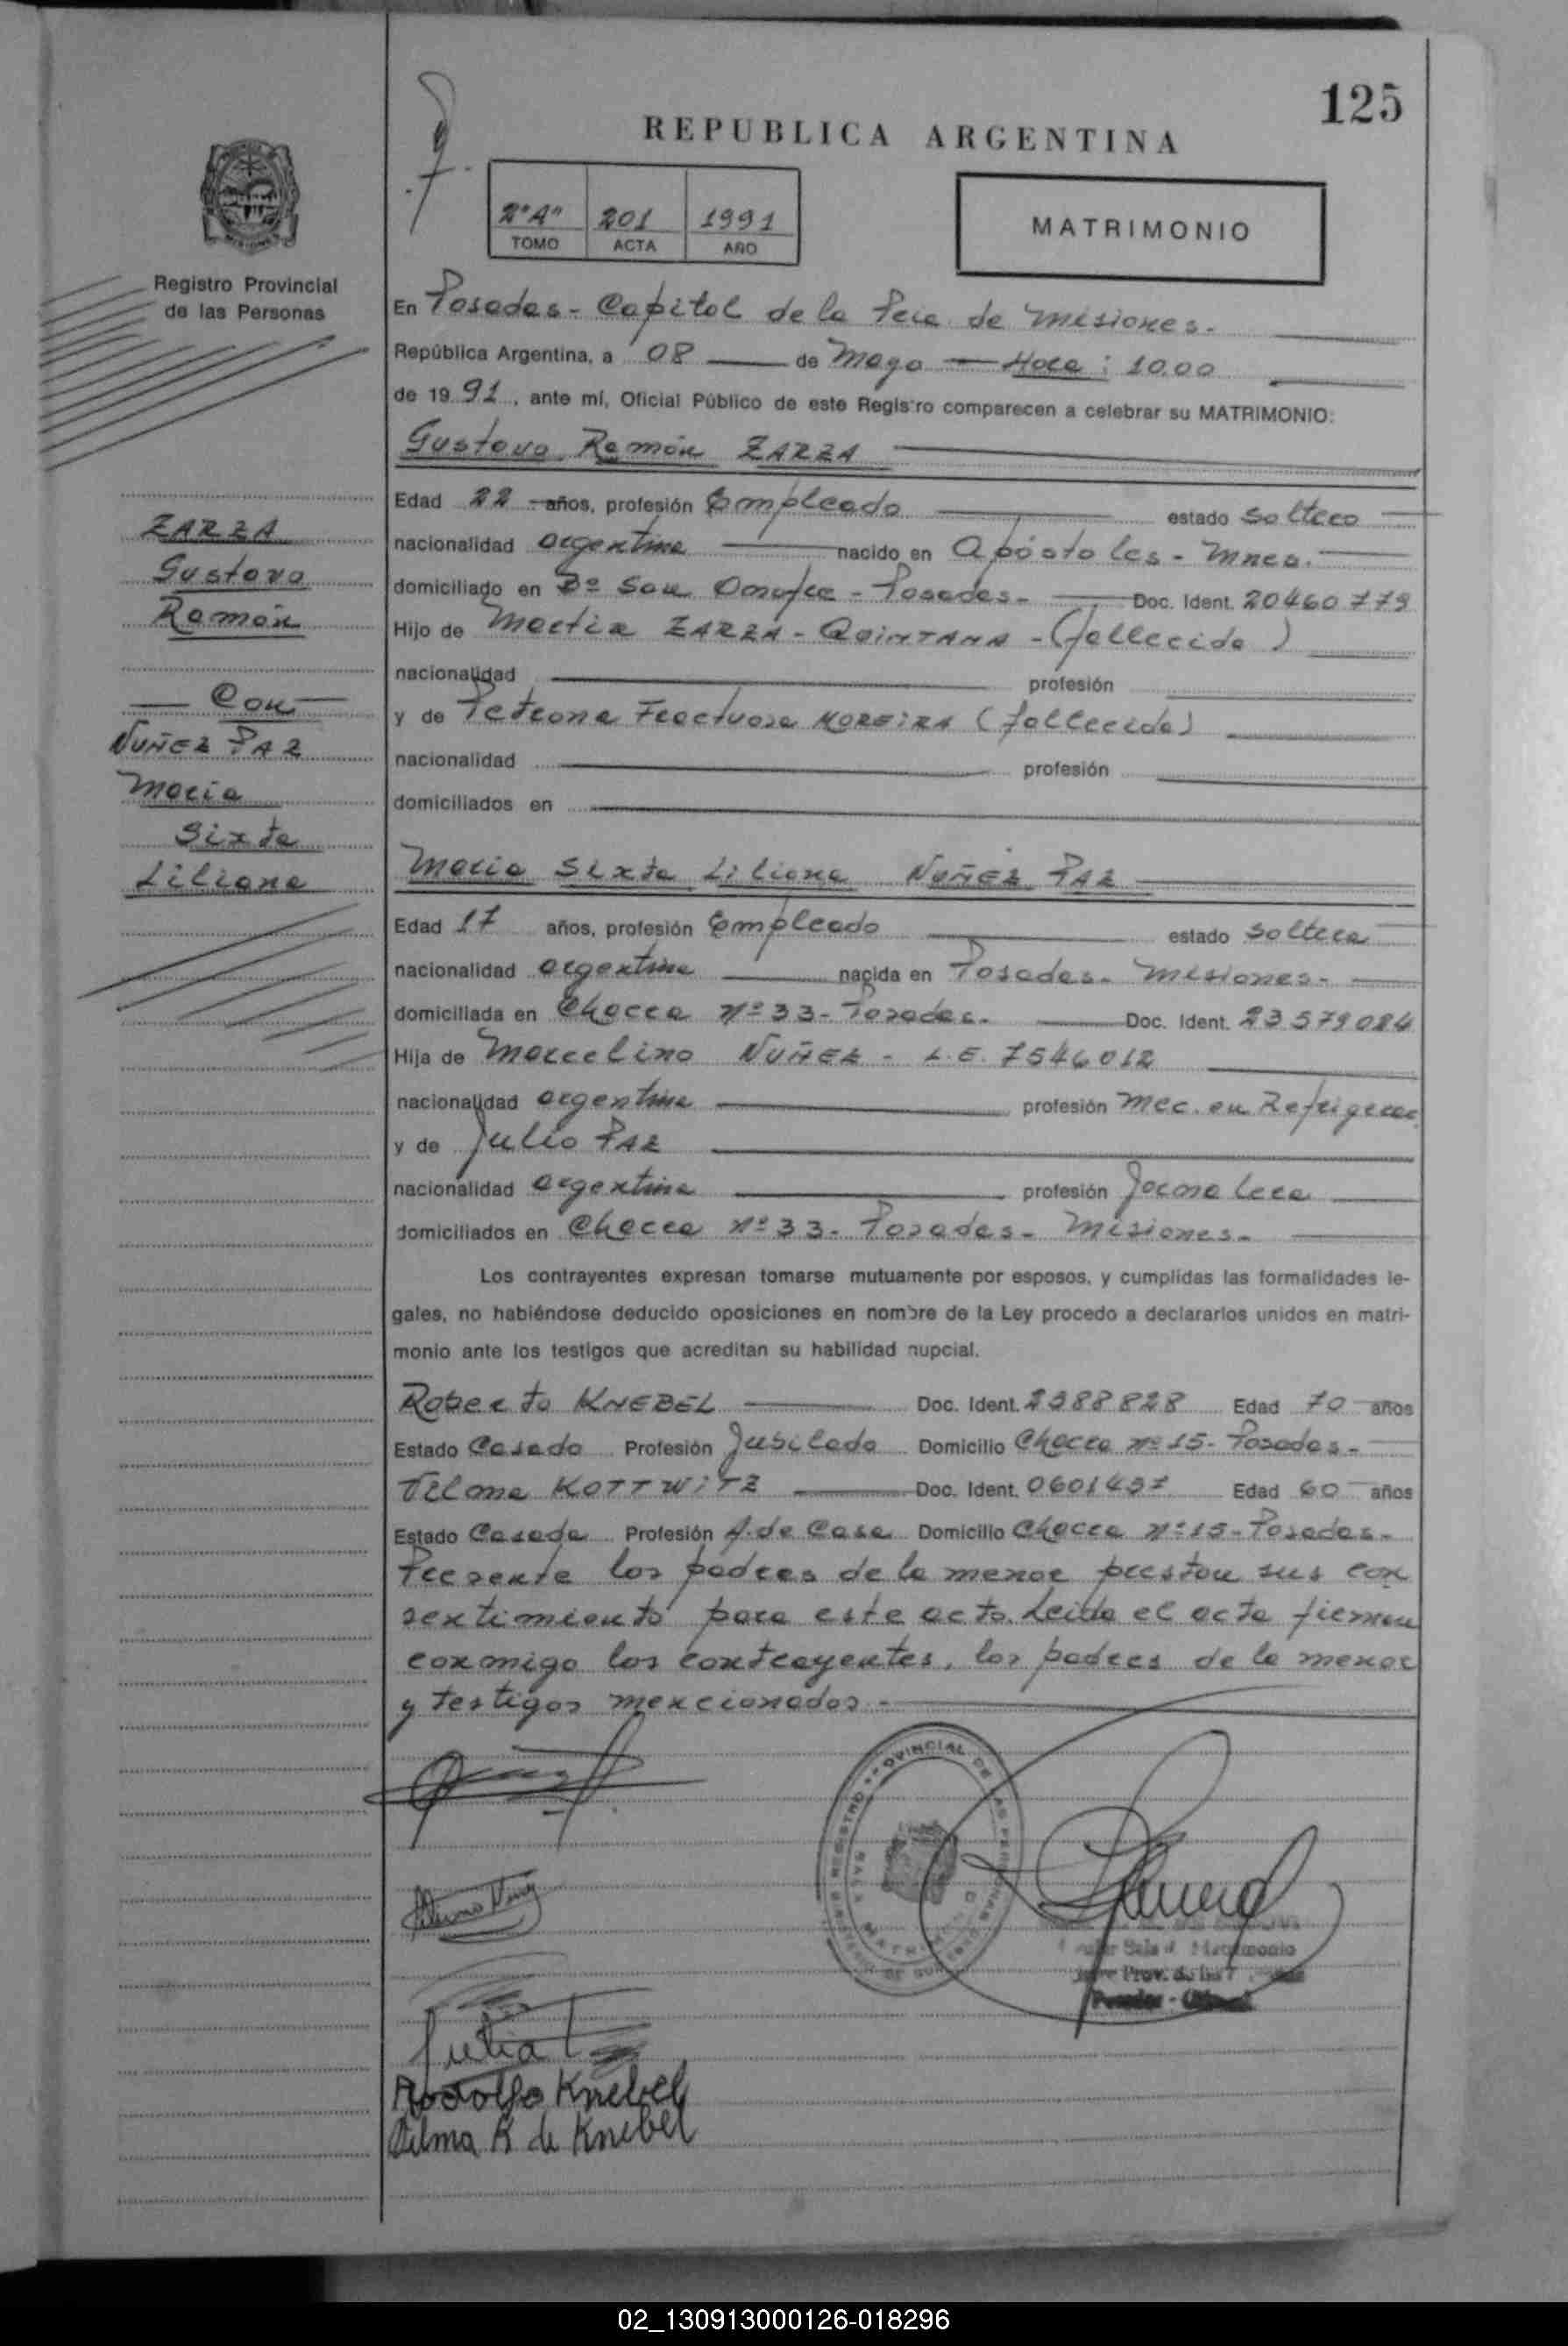 125
REPUBLICA ARGENTINA
2º "A" 201 1991
TOMO ACTA AÑO
MATRIMONIO
Registro Provincial
de las Personas
En Posadas - Capital de la Pcia. de Misiones.-
República Argentina, a 08 de Mayo — Hora: 10.00
de 1991, ante mí, Oficial Público de este Registro comparecen a celebrar su MATRIMONIO:
Gustavo Ramón ZARZA
Edad 22 años, profesión Empleado estado Soltero
nacionalidad argentina nacido en Apóstoles - Mnes.
domiciliado en Bº San Onofre - Posadas - Doc. Ident. 20460779
Hijo de Martín ZARZA - QUINTANA - (fallecido)
nacionalidad profesión
y de Petrona Fructuosa MOREIRA (fallecida)
nacionalidad profesión
domiciliados en
ZARZA
Gustavo
Ramón
— Con —
NUÑEZ PAZ
María
Sixta
Liliana
María Sixta Liliana NUÑEZ PAZ
Edad 17 años, profesión Empleado estado Soltera
nacionalidad argentina nacida en Posadas - Misiones -
domiciliada en Chacra Nº 33 - Posadas - Doc. Ident. 23579084
Hija de Marcelino NUÑEZ - L.E. 7546012
nacionalidad argentina profesión Mec. en Refrigerac.
y de Julia PAZ
nacionalidad argentina profesión Jornalera
domiciliados en Chacra Nº 33 - Posadas - Misiones -
Los contrayentes expresan tomarse mutuamente por esposos, y cumplidas las formalidades le-
gales, no habiéndose deducido oposiciones en nombre de la Ley procedo a declararlos unidos en matri-
monio ante los testigos que acreditan su habilidad nupcial.
Roberto KNEBEL Doc. Ident. 2388828 Edad 70 años
Estado Casado Profesión Jubilado Domicilio Chacra Nº 15 - Posadas -
Vilma KOTTWITZ Doc. Ident. 0601437 Edad 60 años
Estado Casada Profesión A. de Casa Domicilio Chacra Nº 15 - Posadas -
Presente los padres de la menor prestan sus con
sentimiento para este acto. Leída el acta firman
conmigo los contrayentes, los padres de la menor
y testigos mencionados.-
REGISTRO PROVINCIAL DE LAS PERSONAS
Julia
Rodolfo Knebel
Vilma K de Knebel
02_130913000126-018296